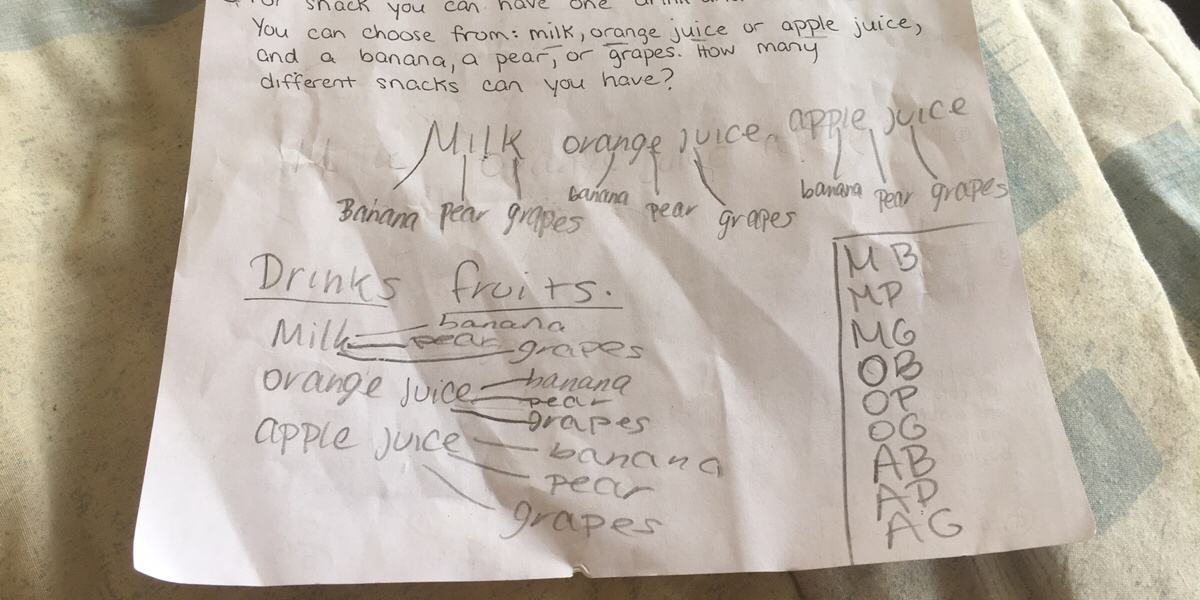 snack you can have one drink
You can choose from: milk, orange juice or apple juice,
and a banana, a pear, or grapes. How many
different snacks can you have?
Milk orange juice apple juice
Banana pear grapes banana pear grapes banana pear grapes
Drinks fruits.
Milk banana
pear
grapes
orange juice banana
pear
grapes
apple juice banana
pear
grapes
M B
MP
MG
OB
OP
OG
AB
AP
AG